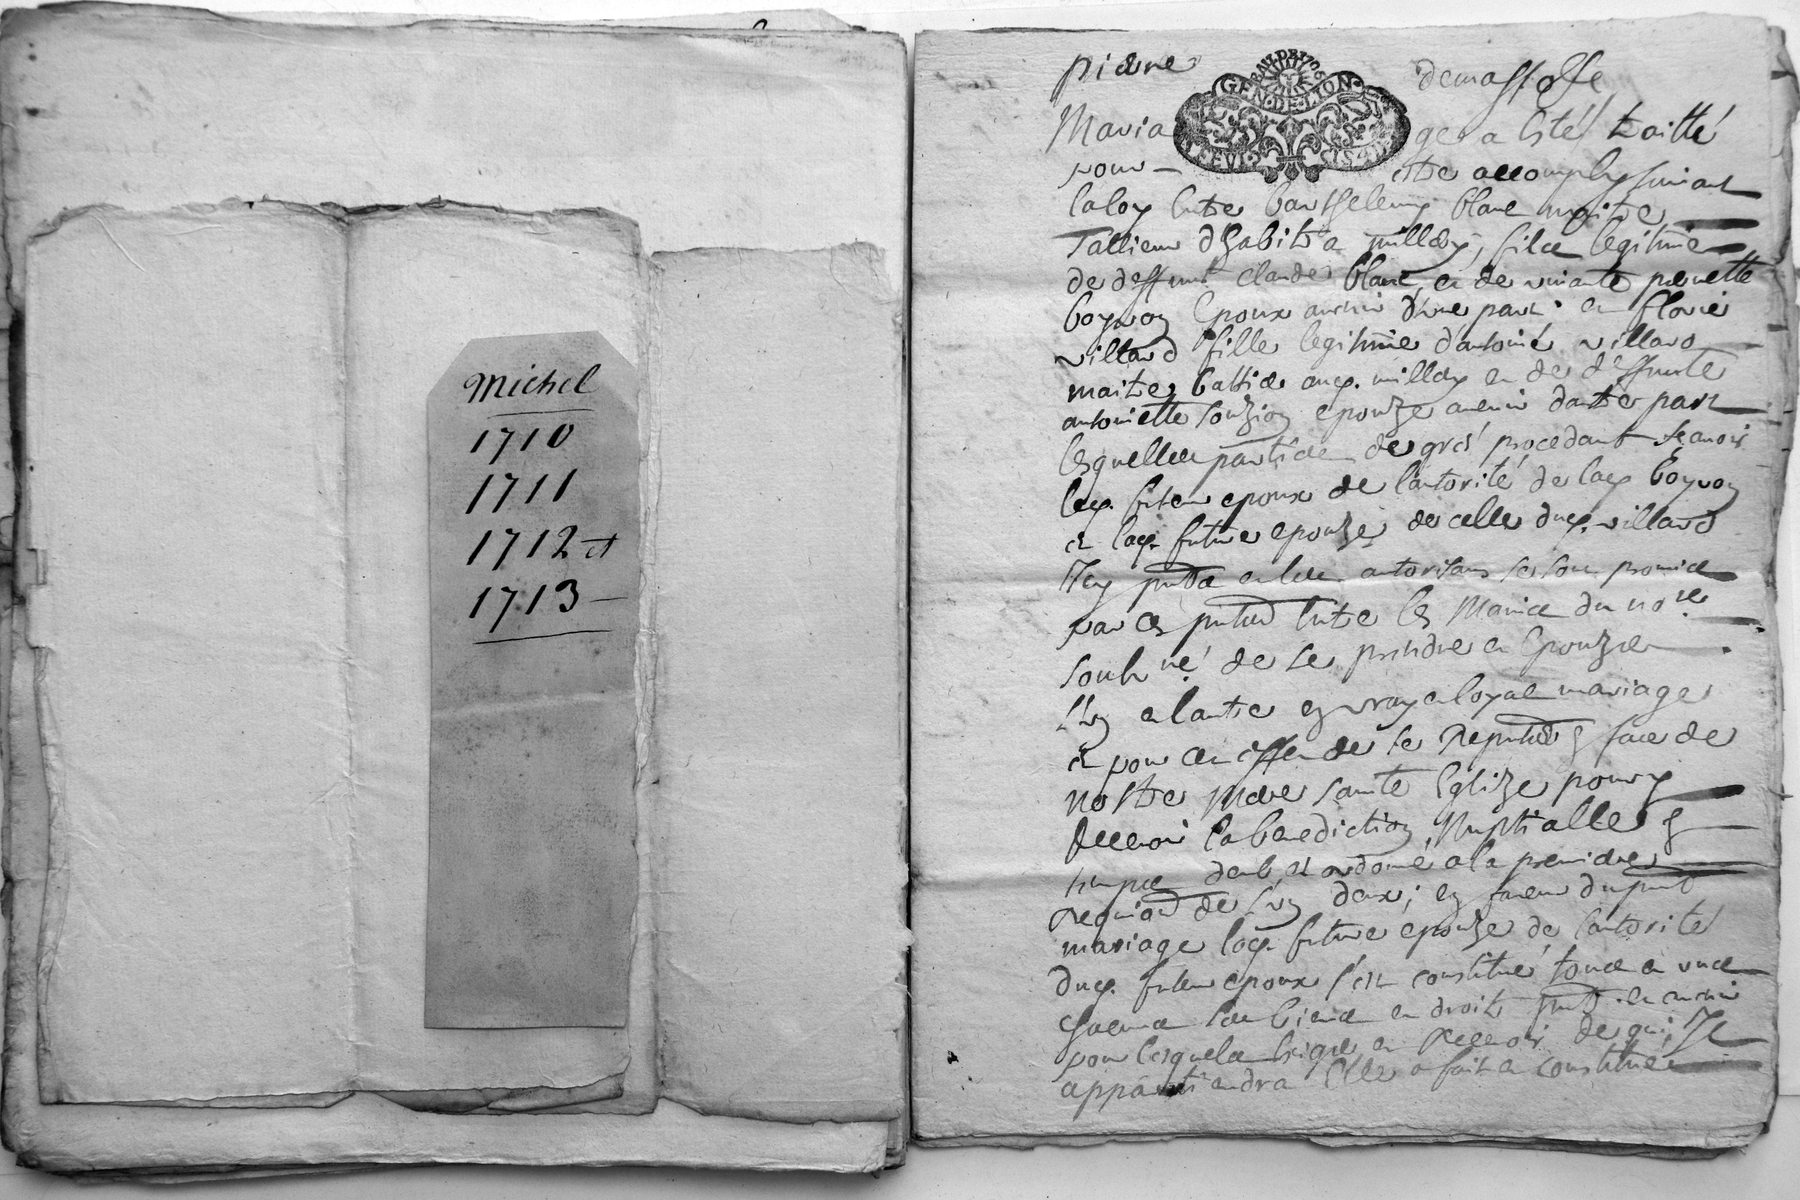 Michel
1710
1711
1712 et
1713
pierre demassosse
BAIL DE 1706
GEN · DE · LION
Maria ge a esté traitté
pour estre accomply suivant
la loy entre barthelemy blanc maitre
Tallieur d'habit a millery, filz legitime
de deffunt claude blanc, et de vivante pierrette
boyron Epoux avenir d'une part et florie
villard fille legitime d'antoine villard
maitre aud. millery et de deffunte
antoinette epouze avenir d'autre part
lesquelles parties de gré procedant scavoir
led. futeur epoux de l'autorité de lad. boyron
et lad. future epouze de celle dud. villard
Icy pnts et les autorisans se sont promis
par ces pntes entre les Mains du nore
soubné de se prendre et Epouzer
l'un et l'autre en vray et loyal mariage
et pour cet effet de se face de
nostre Mere sainte Eglize pour y
Recevoir la benediction Nuptialle
temps deub et ordonné a la premiere
Requisition de l'un deux; en faveur du pnt
mariage lad. future epouze de l'autorité
dud. futeur epoux s'est constitué tous et uncz
chacuns ses biens et droits pnts et avenir
pour lesquels exiger et Recevoir de qui, Il
appartiendra Elle a fait et constitué